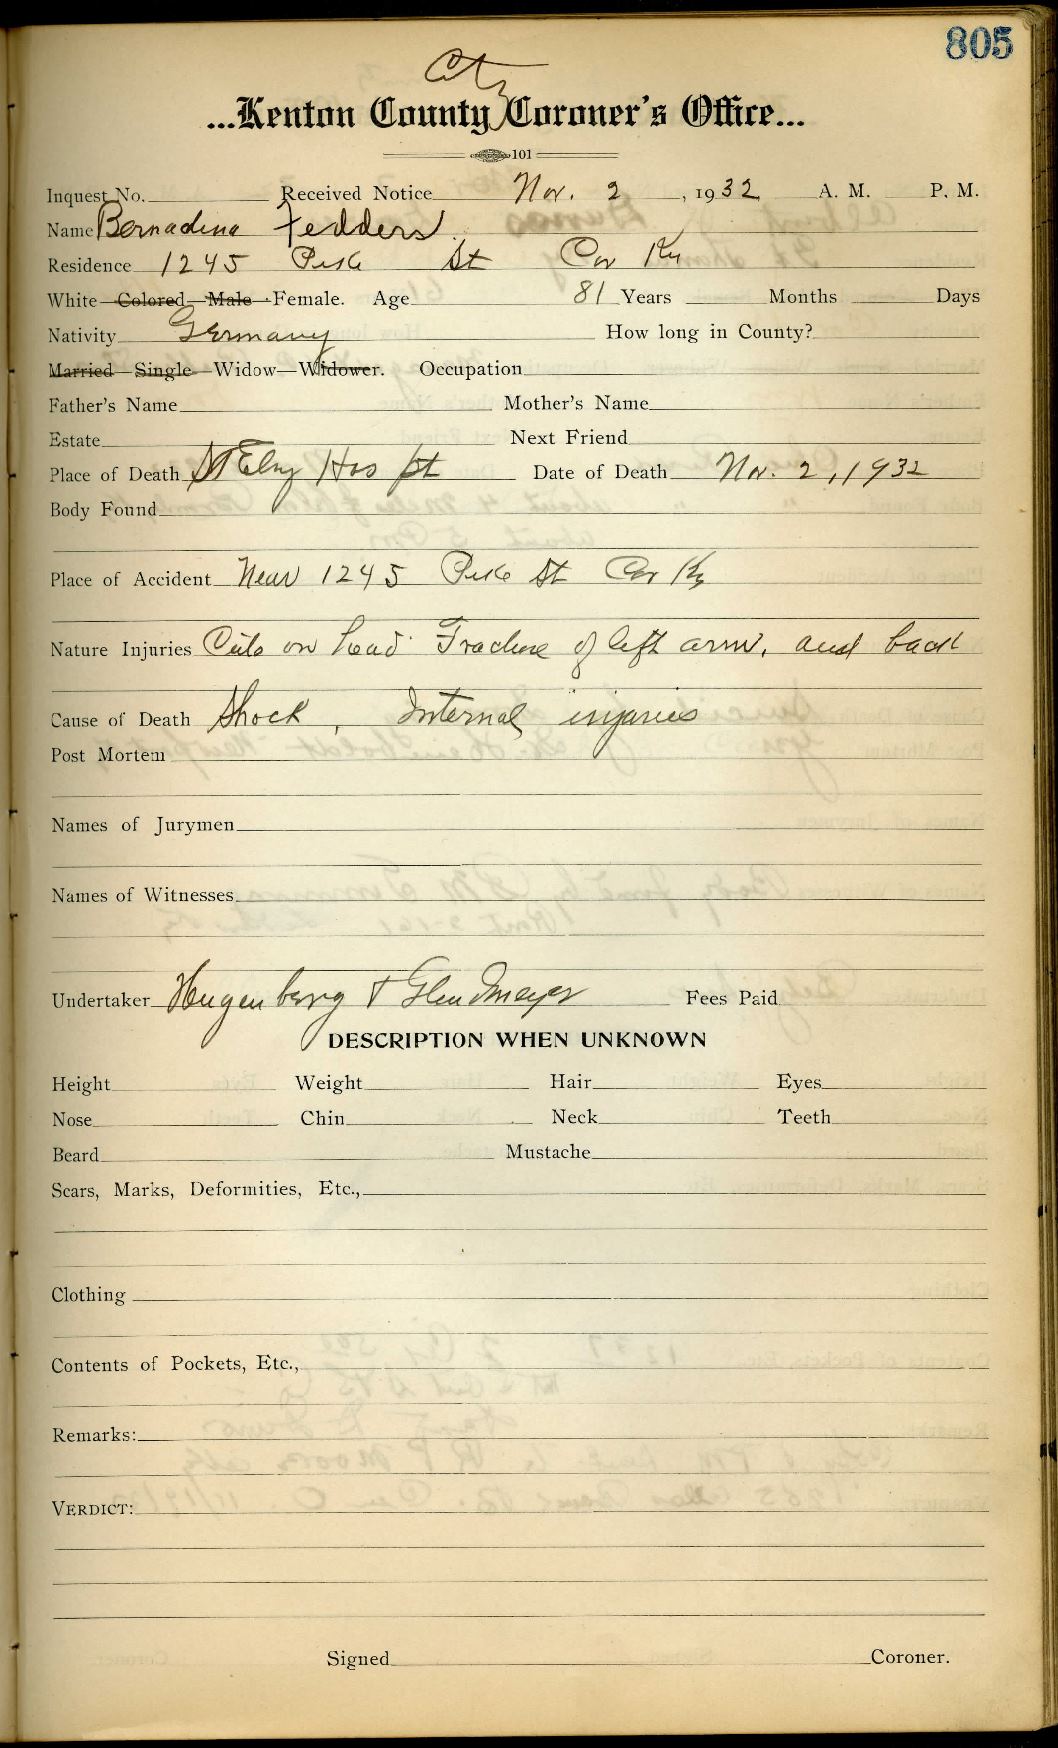 805
City
...Kenton County Coroner's Office...
101
Inquest No. Received Notice Nov. 2, 1932 A. M. P. M.
Name Bernadina Fedders
Residence 1245 Pike St Cov Ky
White—Colored—Male—Female. Age 81 Years Months Days
Nativity Germany How long in County?
Married—Single—Widow—Widower. Occupation
Father's Name Mother's Name
Estate Next Friend
Place of Death St Eliz Hospt Date of Death Nov. 2, 1932
Body Found
Place of Accident Near 1245 Pike St Cov Ky
Nature Injuries Cuts on head Fracture of left arm, and back
Cause of Death Shock, Internal injuries
Post Mortem
Names of Jurymen
Names of Witnesses
Undertaker Hugenberg & Glindmeyer Fees Paid
DESCRIPTION WHEN UNKNOWN
Height Weight Hair Eyes
Nose Chin Neck Teeth
Beard Mustache
Scars, Marks, Deformities, Etc.,
Clothing
Contents of Pockets, Etc.,
Remarks:
VERDICT:
Signed Coroner.